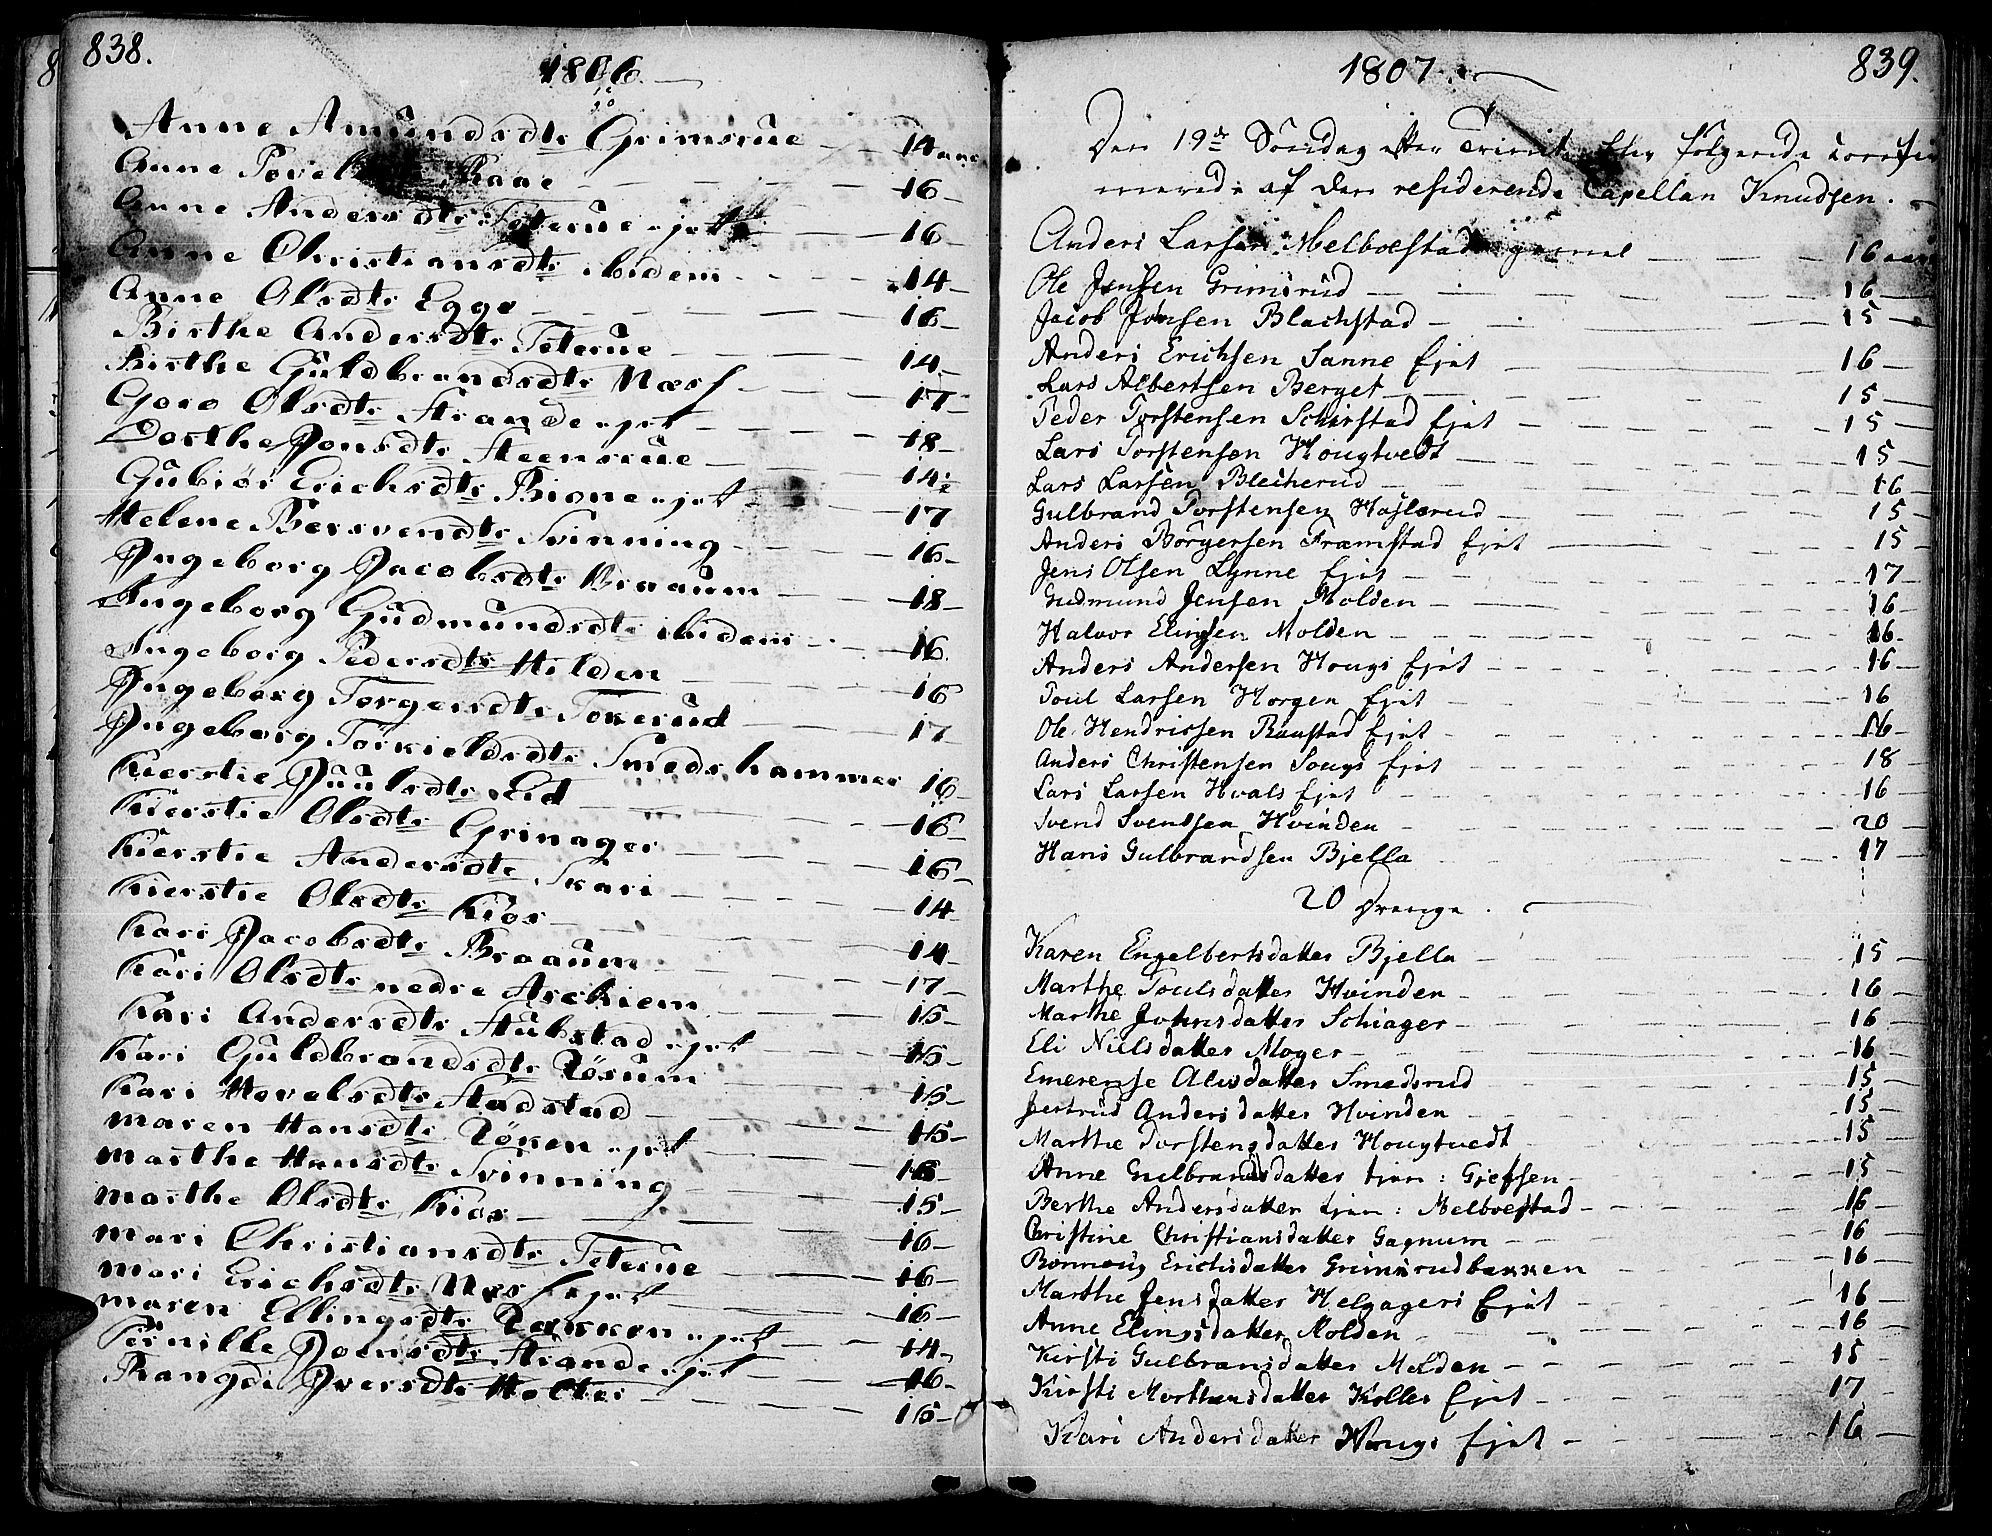 838.
1806.
Anne Amundsdtr Grimsrue 14 aar
Anne Povels Raae 16
Anne Andersdtr Teterue ejet 16
Anne Christiansdtr ibidem 14
Anne Olsdtr Egge 16
Birthe Andersdtr Teterue 14
Birthe Guldbrandsdtr Næss 17
Goro Olsdtr Strande ejet 18
Dorthe Jonsdtr Steensrue 14½
Gubiør Erichsdtr Bione ejet 17
Helene Bersvendtr Svinning 16
Ingeborg Jacobsdtr Braaum 18
Ingeborg Gudmundsdtr ibidem 16
Ingeborg Pedersdtr Hilden 16
Ingeborg Torgersdtr Tokerud 17
Ingeborg Torkieldsdtr Smedshammer 16
Kierstie Juulsdtr Eid 16
Kierstie Olsdtr Grinager 16
Kierstie Andersdtr Skari 14
Kierstie Olsdtr Kios 14
Kari Jacobsdtr Braaum 17
Kari Olsdtr nedre Askiem 15
Kari Andersdtr Stubstad ejet 15
Kari Guldbrandsdtr Røsum 15
Kari Hovelsdtr Stadstad 15
Maren Hansdtr Røken ejet 16
Marthe Hansdtr Svinning 15
Marthe Olsdtr Kios 16
Mari Christiansdtr Teterue 16
Mari Erichsdtr Næss ejet 16
Maren Ellingsdtr Røkken ejet 14
Pernille Joensdtr Strande ejet 16
Rangdi Iversdtr Holter 15
1807.
839.
Den 19de Søndag efter Trinit. blev følgende confir
mered: af den residerende Capellan Knudsen.
Anders Larsen Melboestad 16 aar
Ole Jensen Grimsrud 16
Jacob Jonsen Blachstad 15
Anders Erichsen Sanne Ejet 16
Lars Albertsen Berget 15
Peder Torstensen Schirstad Ejet 15
Lars Torstensen Hougtvedt 15
Lars Larsen Bleiherud 16
Gulbrand Torstensen Haslerud 15
Anders Børgersen Framstad Ejet 15
Jens Olsen Lynne Ejet 17
Gudmund Jensen Molden 16
Halvor Elingsen Molden 16
Anders Andersen Hougs Ejet 16
Poul Larsen Horgen Ejet 16
Ole Hendricsen Raustad Ejet 16
Anders Christensen Sougs Ejet 18
Lars Larsen Hvals Ejet 16
Svend Svendsen Hvinden 20
Hans Gulbrandsen Bjella 17
20 Drenge.
Karen Engelbertsdatter Bjella 15
Marthe Poulsdatter Hvinden 16
Marthe Johnsdatter Schiager 16
Eli Nielsdatter Moger 16
Emerense Alvsdatter Smedsrud 15
Jertrud Andersdatter Hvinden 15
Marthe Torstensdatter Hougtvedt 15
Anne Gulbrandsdatter tjen: Gjefsen 15
Berthe Andersdatter tjen: Melboestad 16
Christine Christiansdatter Gagnum 16
Ronnoug Erichsdatter Grimsrudbakken 16
Marthe Jensdatter Helgagers Ejet 16
Anne Elingsdatter Molden 16
Kirsti Gulbransdatter Molden 15
Kirsti Morthensdatter Koller Ejet 17
Kari Andersdatter Hougs Ejet 16